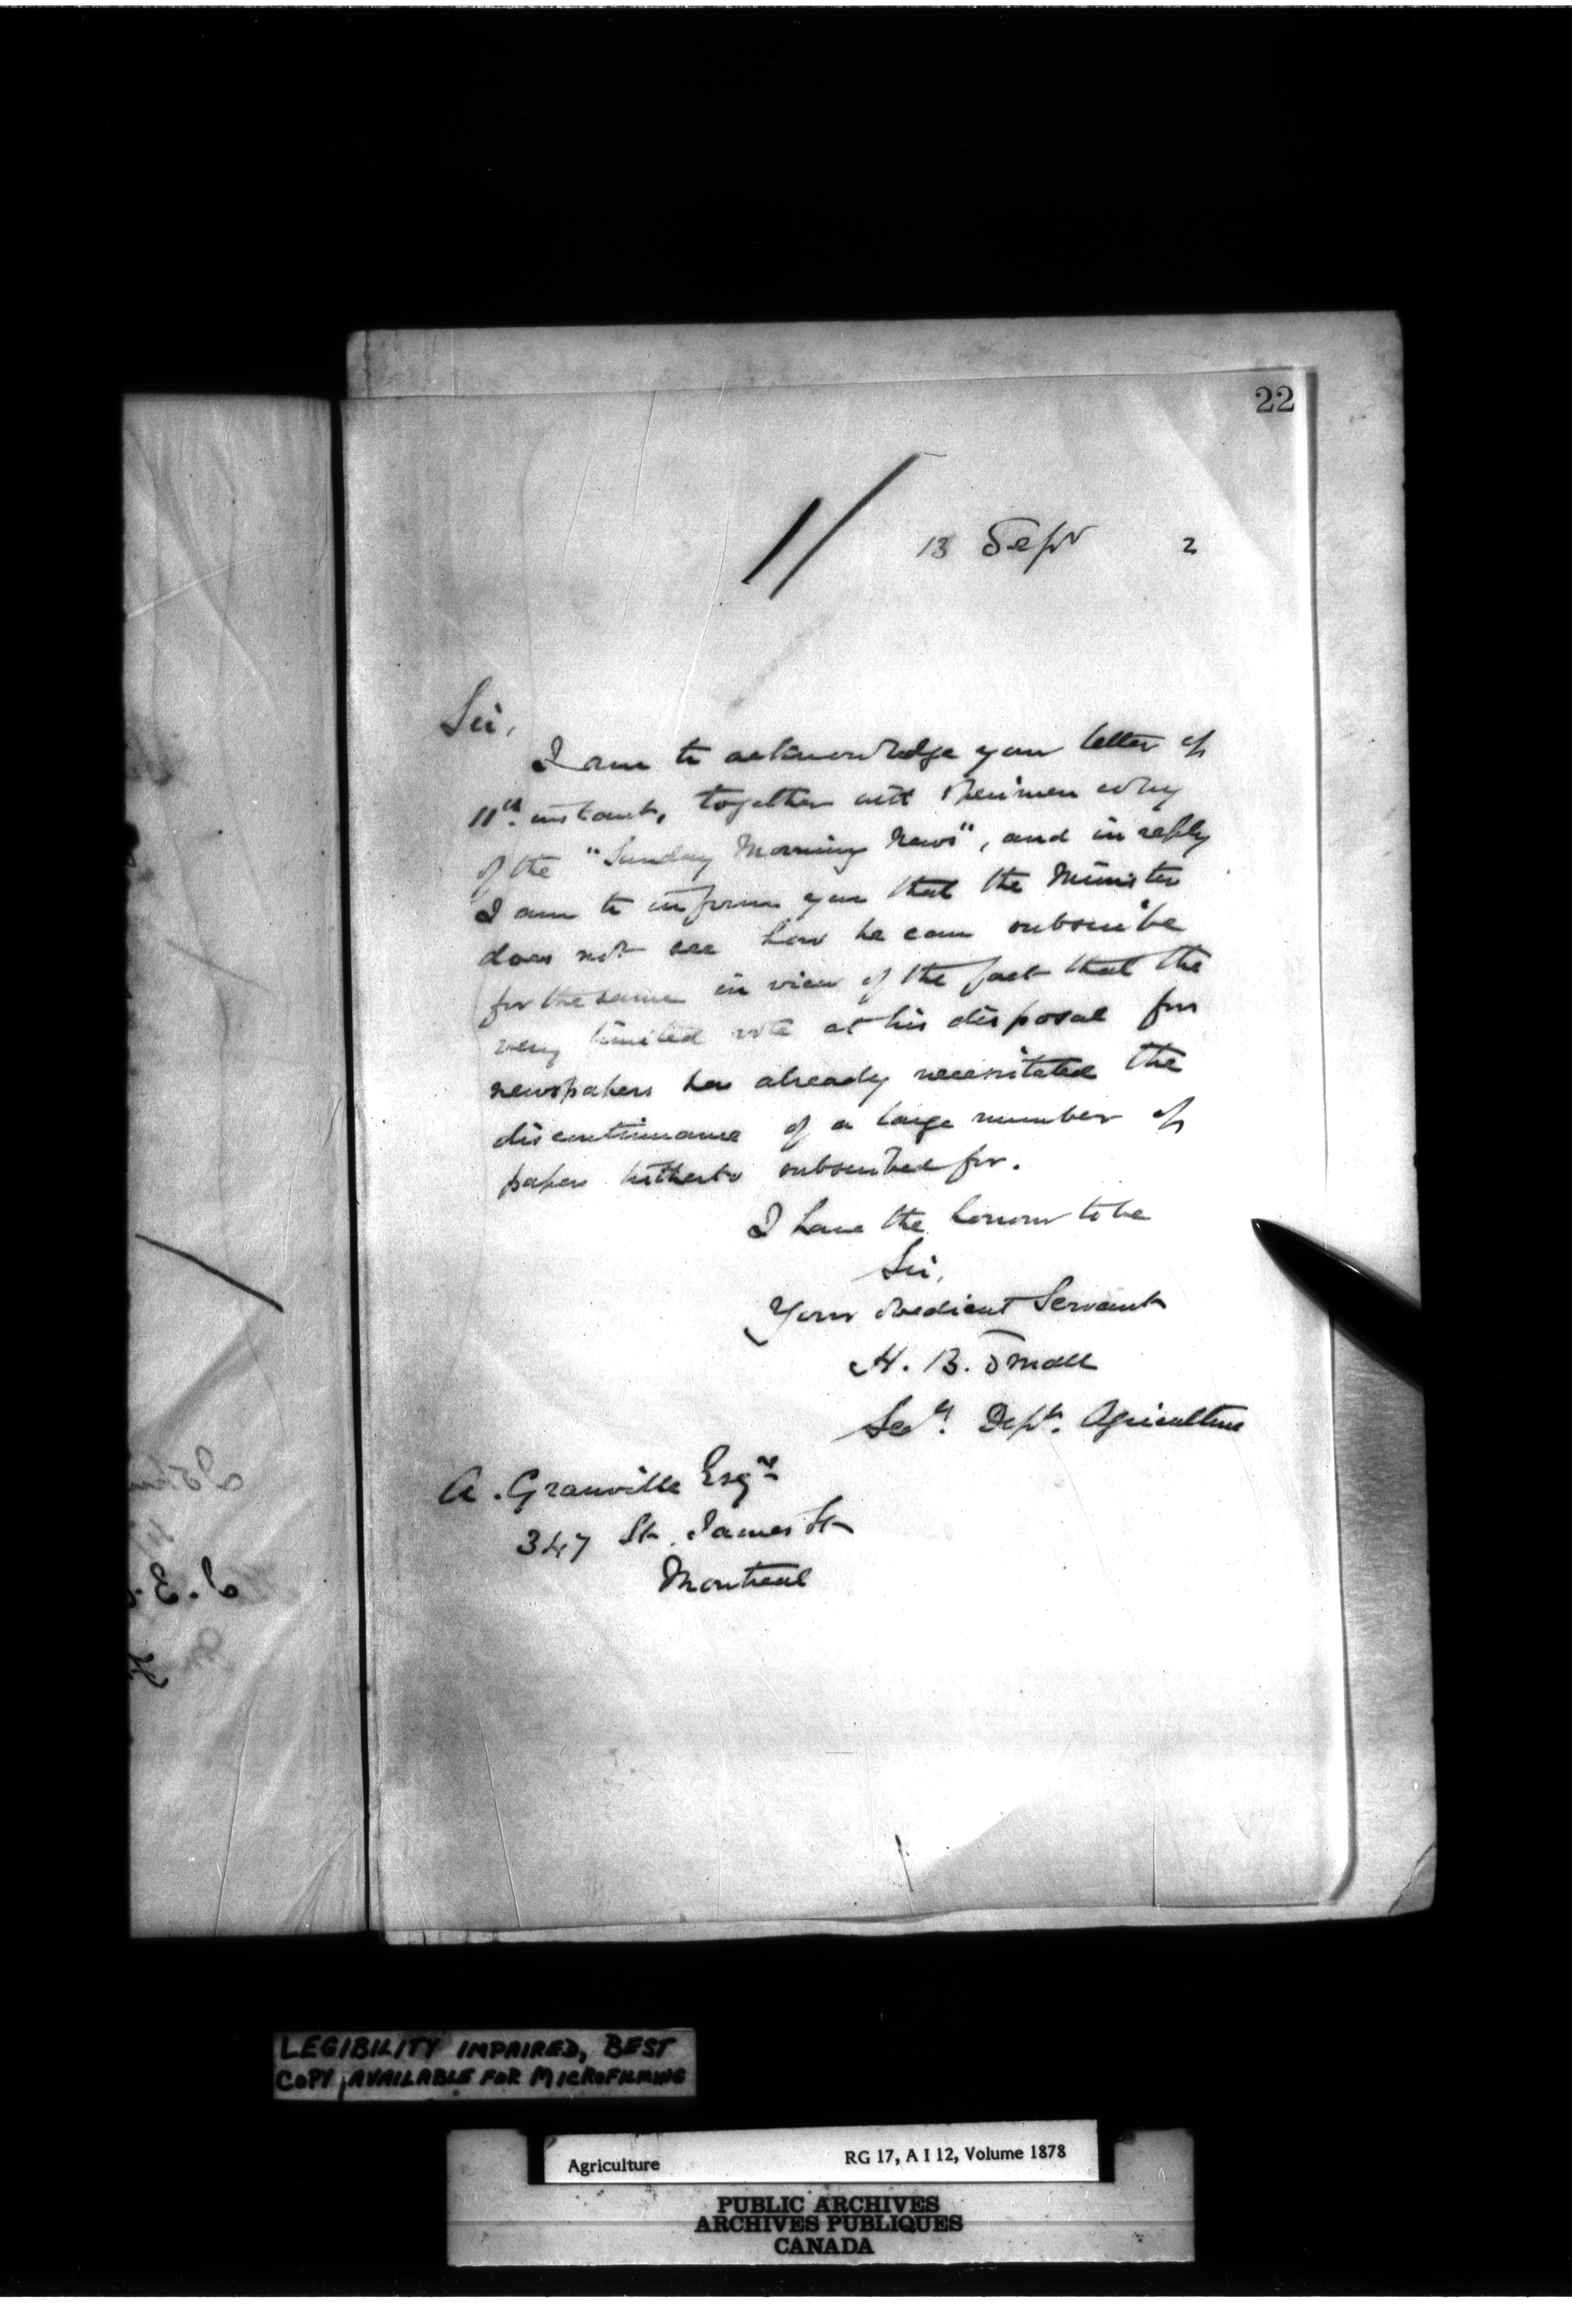 22
13 Sepr 2
Sir,
I am to acknowledge your letter of
11th. instant, together with specimen copy
of the "Sunday Morning News", and in reply
I am to inform you that the Minister
does not see how he can subscribe
for the same in view of the fact that the
very limited vote at his disposal for
newspapers has already necessitated the
discontinuance of a large number of
papers hitherto subscribed for.
I have the honour to be
Sir,
Your obedient Servant
H. B. Small
Secy. Dept. Agriculture
A. Granville Esqr
347 St. James St
Montreal
LEGIBILITY IMPAIRED, BEST
COPY AVAILABLE FOR MICROFILMING
Agriculture RG 17, A I 12, Volume 1878
PUBLIC ARCHIVES
ARCHIVES PUBLIQUES
CANADA